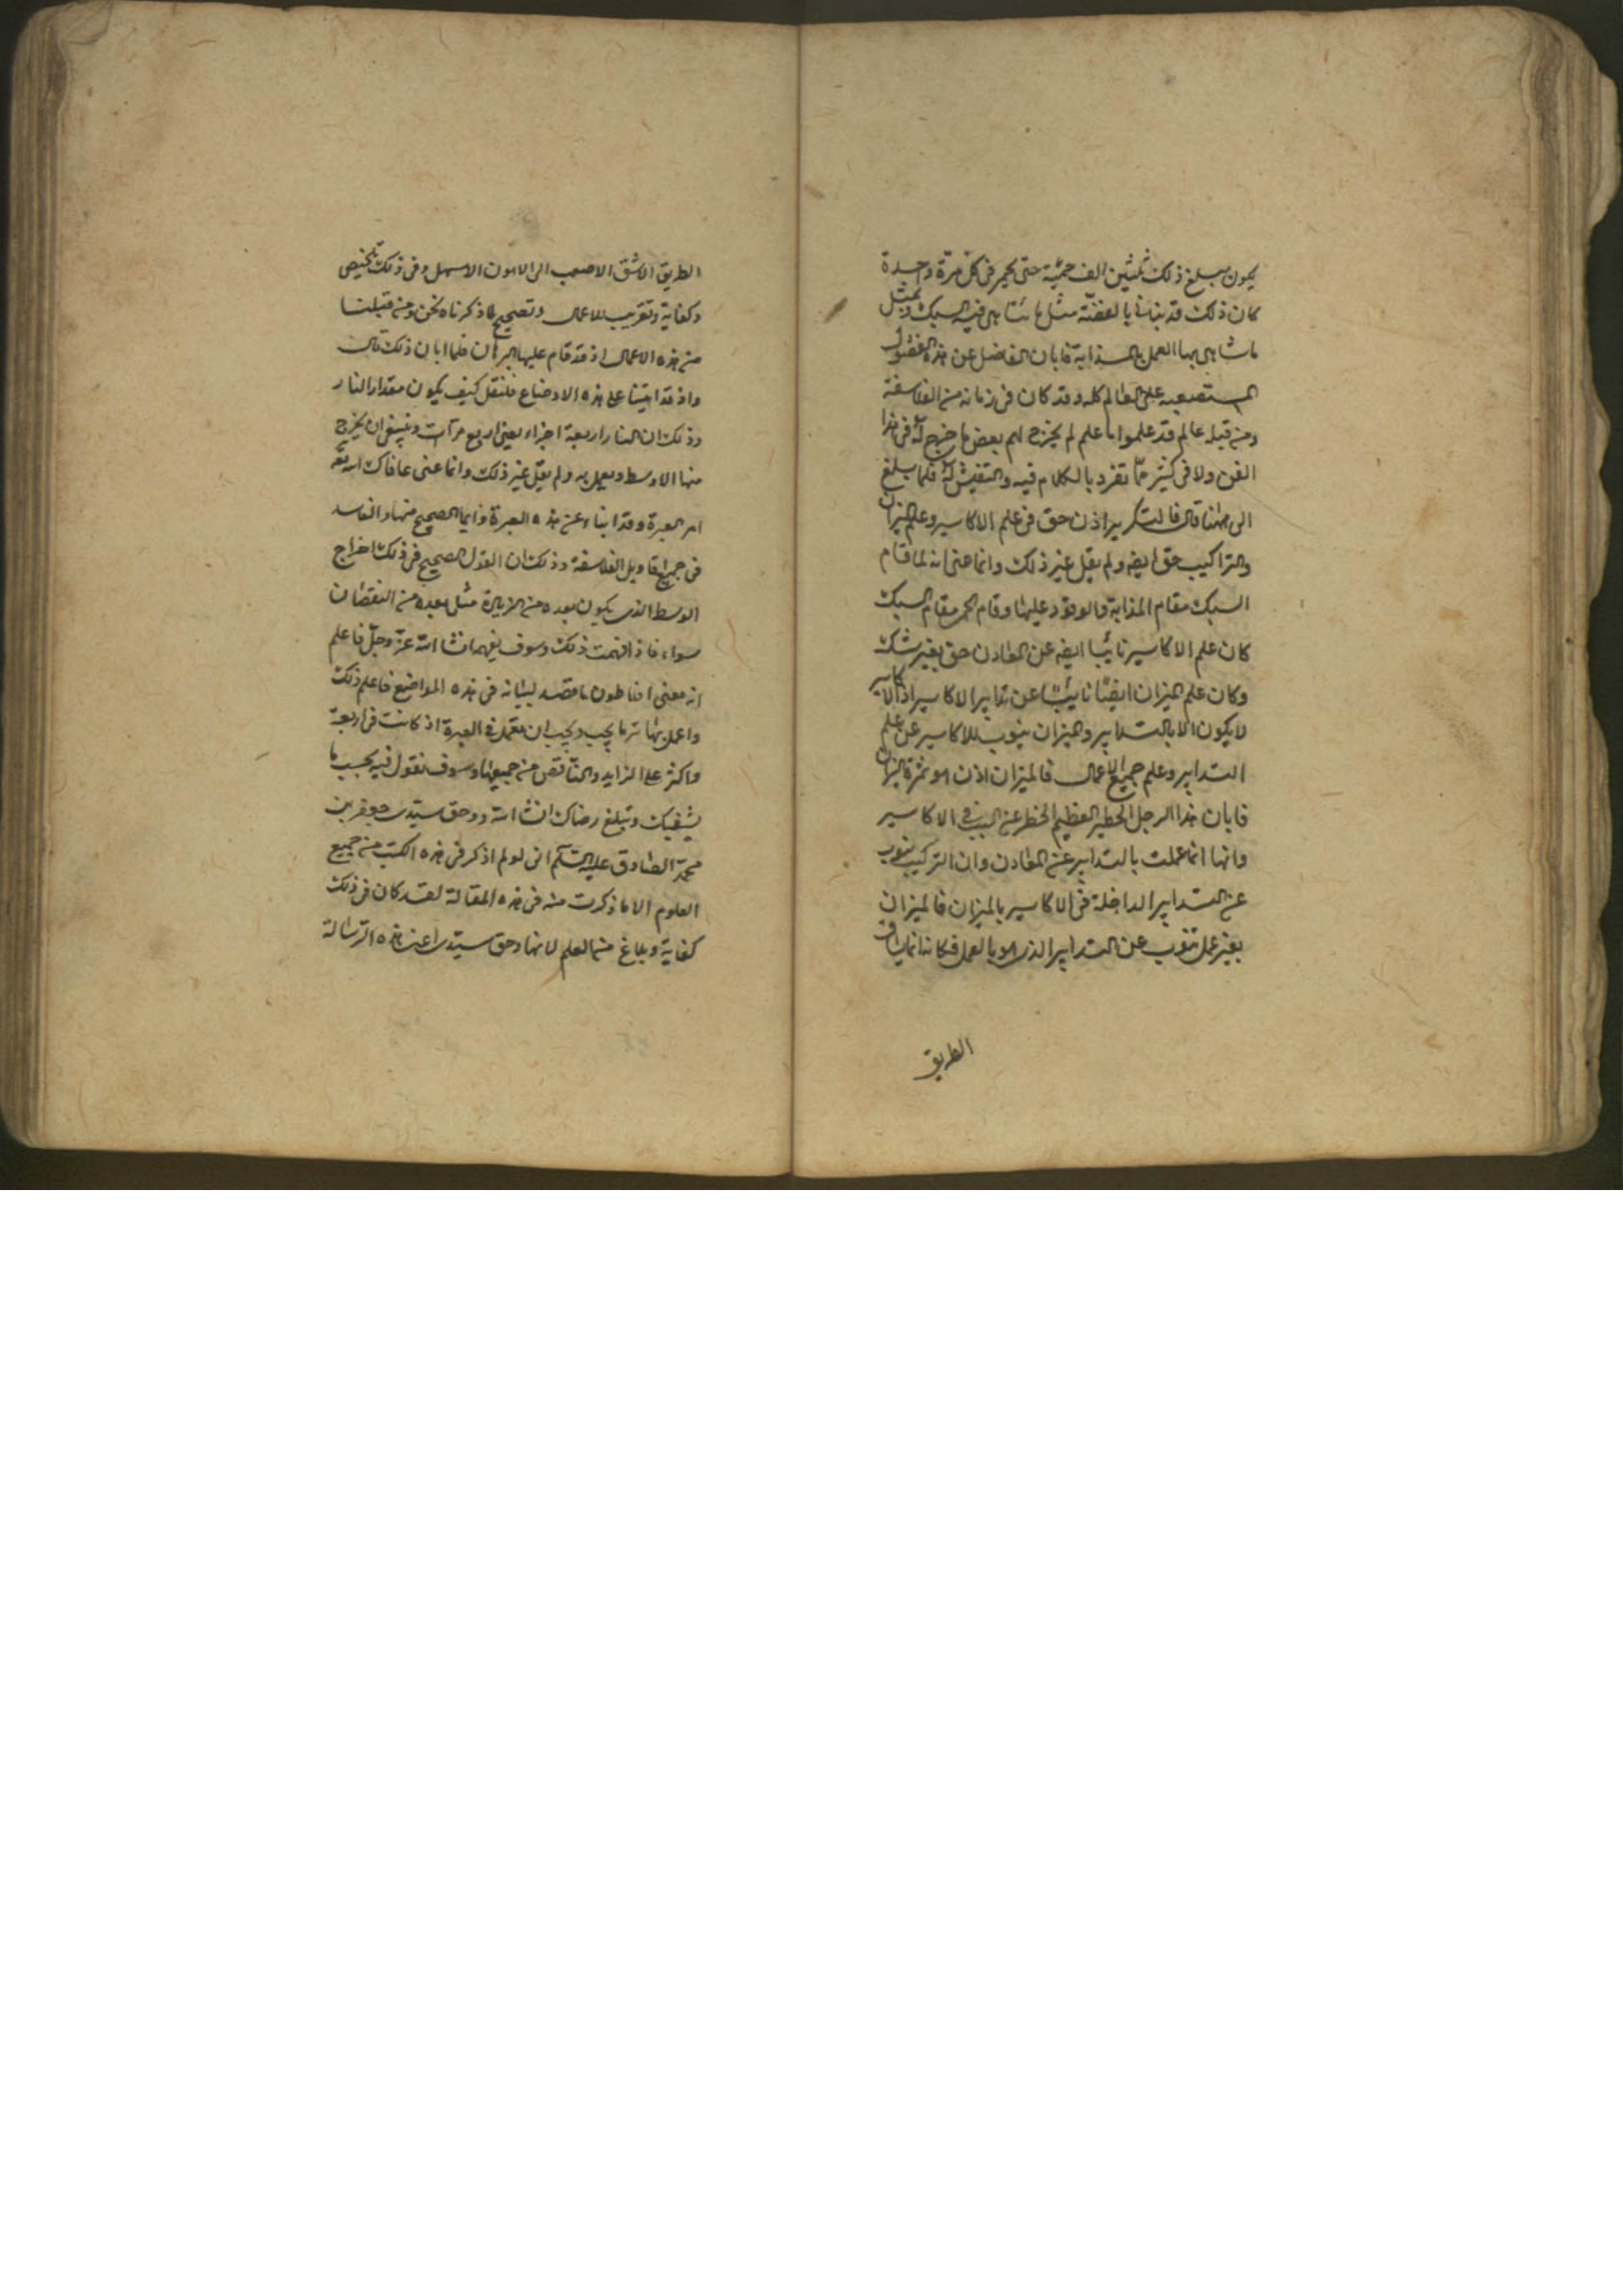 يكون مبلغ ذلك ثلثين الف حمية حتى يحمر فى كل مرة واحدة
كان ذلك قد بالفضة مثل ما فيه السبك وبمثل
ما بها العمل المذابة فابان الفاضل عن هذه الفصول
المستصعبة على العالم كله وقد كان فى زمانه من الفلاسفة
ومن قبله عالم قد علموا ما علم لم يخرج لهم بعض ما خرج له فى هذا
الفن ولا فى كثير مما تفرد بالكلام فيه والتفيش له فلما بلغ
الى ههنا قال فالتدبير اذن حق فى علم الاكاسير وعلم الميزان
والتراكيب حق ايضه ولم يقل غير ذلك وانما عنى انه لما قام
السبك مقام المذابة والوقود عليها وقام الحمر مقام السبك
كان علم الاكاسير نائبا ايضه عن المعادن حق بغير شك
وكان علم الميزان ايضًا نائبًا عن تدابير الاكاسير اذ الاكاسير
لا يكون الا بالتدابير والميزان ينوب للاكاسير عن علم
التدابير وعلم جميع الاعمال فالميزان اذن هو ثمرة
فابان هذا الرجل الخطير العظيم الخطر عن السبب فى الاكاسير
وانها انما عملت بالتدابير عن المعادن وان التركيب ينوب
عن التدابير الداخلة فى الاكاسير بالميزان فالميزان
بغير عمل تنوب عن التدابير الذى هو بالعمل فكانه انما
الطريق
الطريق الاشق الاصعب الى الاهون الاسهل وفى ذلك تلخيص
وكفاية وتقريب للاعمال وتصحيح لما ذكرناه نحن ومن قبلنا
من هذه الاعمال اذ قد قام عليها البرهان فلما ابان ذلك قال
واذ قد اتينا على هذه الاوضاع فلنقل كيف يكون مقدار النار
وذلك ان النار اربعة اجزاء يعنى اربع مرآت وينبغى ان يخرج
منها الاوسط ويعمل به ولم يقل غير ذلك وانما عنى عافاك الله تعه
امر العبرة وقد ابناء عن هذه العبرة وايما الصحيح منها والفاسد
فى جميع اقاويل الفلاسفة وذلك ان القول الصحيح فى ذلك اخراج
الوسط الذى يكون بعده من الزيادة مثل بعده من النقصان
سواء فاذا فهمت ذلك وسوف يفهم انشا الله عز وجل فاعلم
انه معنى افلاطون ما قصد لبيانه فى هذه المواضع فاعلم ذلك
واعمل بها تر ما يجب ويجب ان تعمل فى العبرة اذ كانت فى اربعة
واكثر على الزايد والناقص من جميعها وسوف نقول فيه بحسب ما
يشفيك وتبلغ رضاك انشا الله ووحق سيدى جعفر بن
محمد الصادق عليه السلم انى لو لم اذكر فى هذه الكتب من جميع
العلوم الا ما ذكرت منه فى هذه المقالة لقد كان فى ذلك
كفاية وبلاغ العلم لانها وحق سيدى اعنى هذه الرسالة